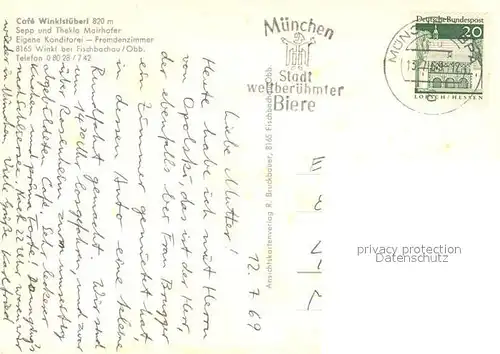 Café Winklstüberl 820 m
Sepp und Thekla Mairhofer
Eigene Konditorei — Fremdenzimmer
8165 Winkl bei Fischbachau/Obb.
Telefon 0 80 28 / 7 42
München
Stadt
weltberühmter
Biere
Deutsche Bundespost
20
LORSCH/HESSEN
12.7.69
Liebe Mutter!
Heute habe ich mit Herrn
von Opolski, das ist der Herr,
der ebenfalls bei Frau Brugger
ein Zimmer gemietet hat,
in dessen Auto eine kleine
Rundfahrt gemacht. Wir sind
um 14.30 Uhr losgefahren, und zwar
über Rosenheim zum umseitig
abgebildeten Café. Sehr leckerer
Kuchen und prima Torte! Dann ging's
nach Schliersee. Nach 22 Uhr waren wir
wieder in München. Viele Grüße
Ansichtskartenverlag R. Bruckbauer, 8165 Fischbachau/Obb.
privacy protection
Datenschutz